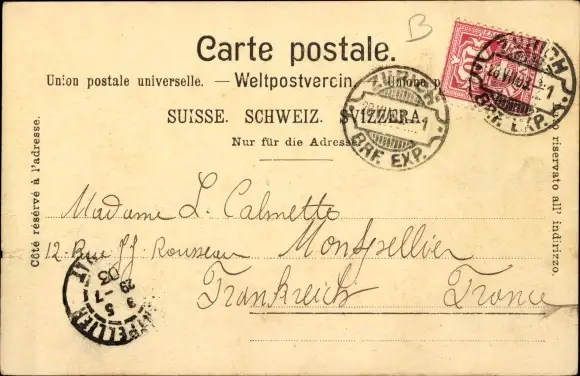 B
Carte postale.
Union postale universelle. — Weltpostverein. Unione p
SUISSE. SCHWEIZ. SVIZZERA.
Nur für die Adresse
Côté réservé à l'adresse.
riservato all' indirizzo.
ZÜRICH
1
BRF. EXP.
ZÜRICH
18.VII.03. 1
BRF. EXP.
10
Madame L. Calmette
12. Rue JJ. Rousseau Montpellier
Frankreich France
MONTPELLIER
5
03